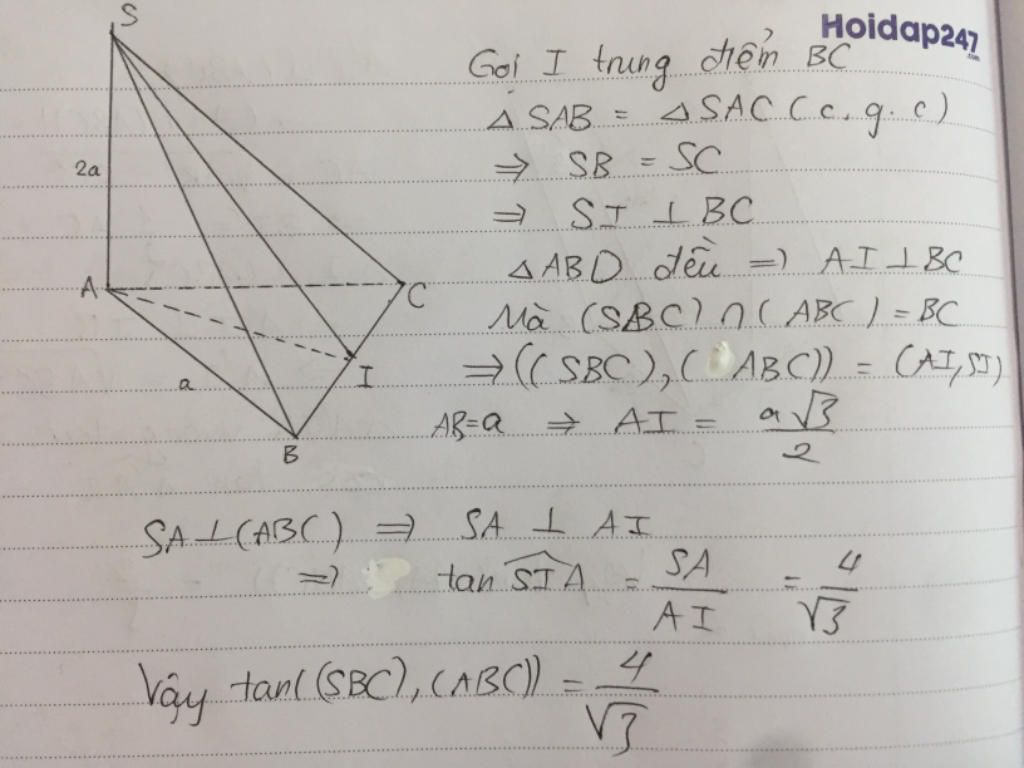 Hoidap247
.com
S
2a
A
C
a
I
B
Gọi I trung điểm BC
△SAB = △SAC (c.g.c)
⇒ SB = SC
⇒ SI ⊥ BC
△ABD đều ⇒ AI ⊥ BC
Mà (SBC) ∩ (ABC) = BC
⇒ ((SBC), (ABC)) = (AI, SI)
AB=a ⇒ AI = a√3/2
SA ⊥ (ABC) ⇒ SA ⊥ AI
⇒ tan SIA = SA/AI = 4/√3
Vậy tan((SBC), (ABC)) = 4/√3